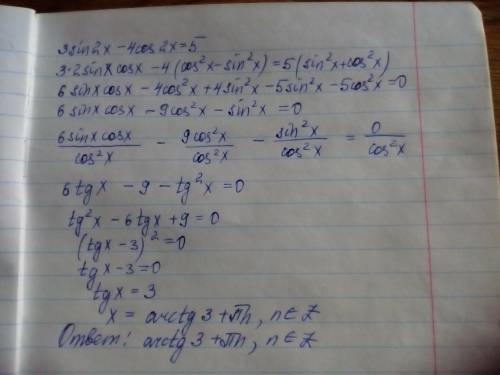 3sin2x - 4cos2x = 5
3·2sinx cosx - 4(cos²x - sin²x) = 5(sin²x + cos²x)
6sinx cosx - 4cos²x + 4sin²x - 5sin²x - 5cos²x = 0
6sinx cosx - 9cos²x - sin²x = 0
6sinx cosx/cos²x - 9cos²x/cos²x - sin²x/cos²x = 0/cos²x
6tgx - 9 - tg²x = 0
tg²x - 6tgx + 9 = 0
(tgx - 3)² = 0
tgx - 3 = 0
tgx = 3
x = arctg3 + πn, n ∈ Z
Ответ: arctg3 + πn, n ∈ Z